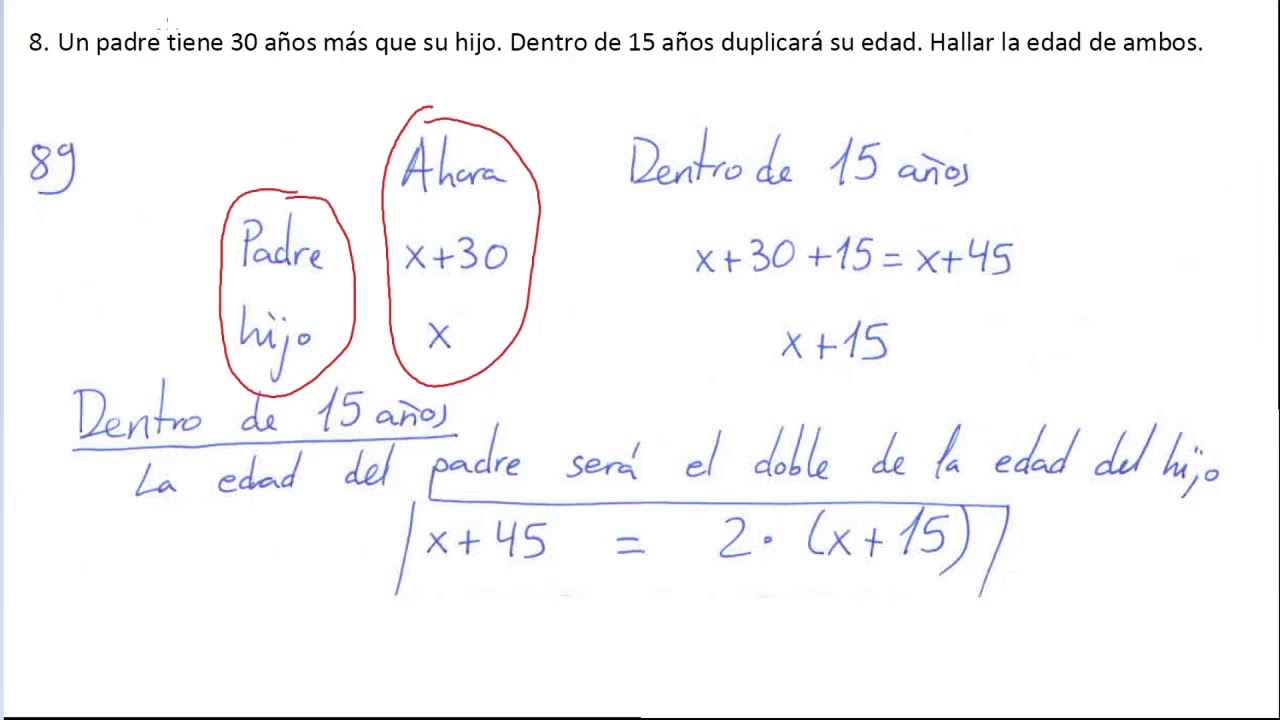 8. Un padre tiene 30 años más que su hijo. Dentro de 15 años duplicará su edad. Hallar la edad de ambos.
8º Ahora Dentro de 15 años
Padre x+30 x+30+15=x+45
hijo x x+15
Dentro de 15 años
La edad del padre será el doble de la edad del hijo
x+45 = 2·(x+15)